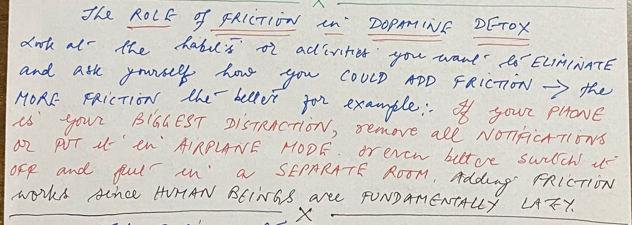 The ROLE of FRICTION in DOPAMINE DETOX
Look at the habits or activities you want to ELIMINATE
and ask yourself how you COULD ADD FRICTION → the
MORE FRICTION the better for example:. If your PHONE
is your BIGGEST DISTRACTION, remove all NOTIFICATIONS
or PUT it in AIRPLANE MODE. or even better switch it
OFF and put in a SEPARATE ROOM. Adding FRICTION
works since HUMAN BEINGS are FUNDAMENTALLY LAZY.